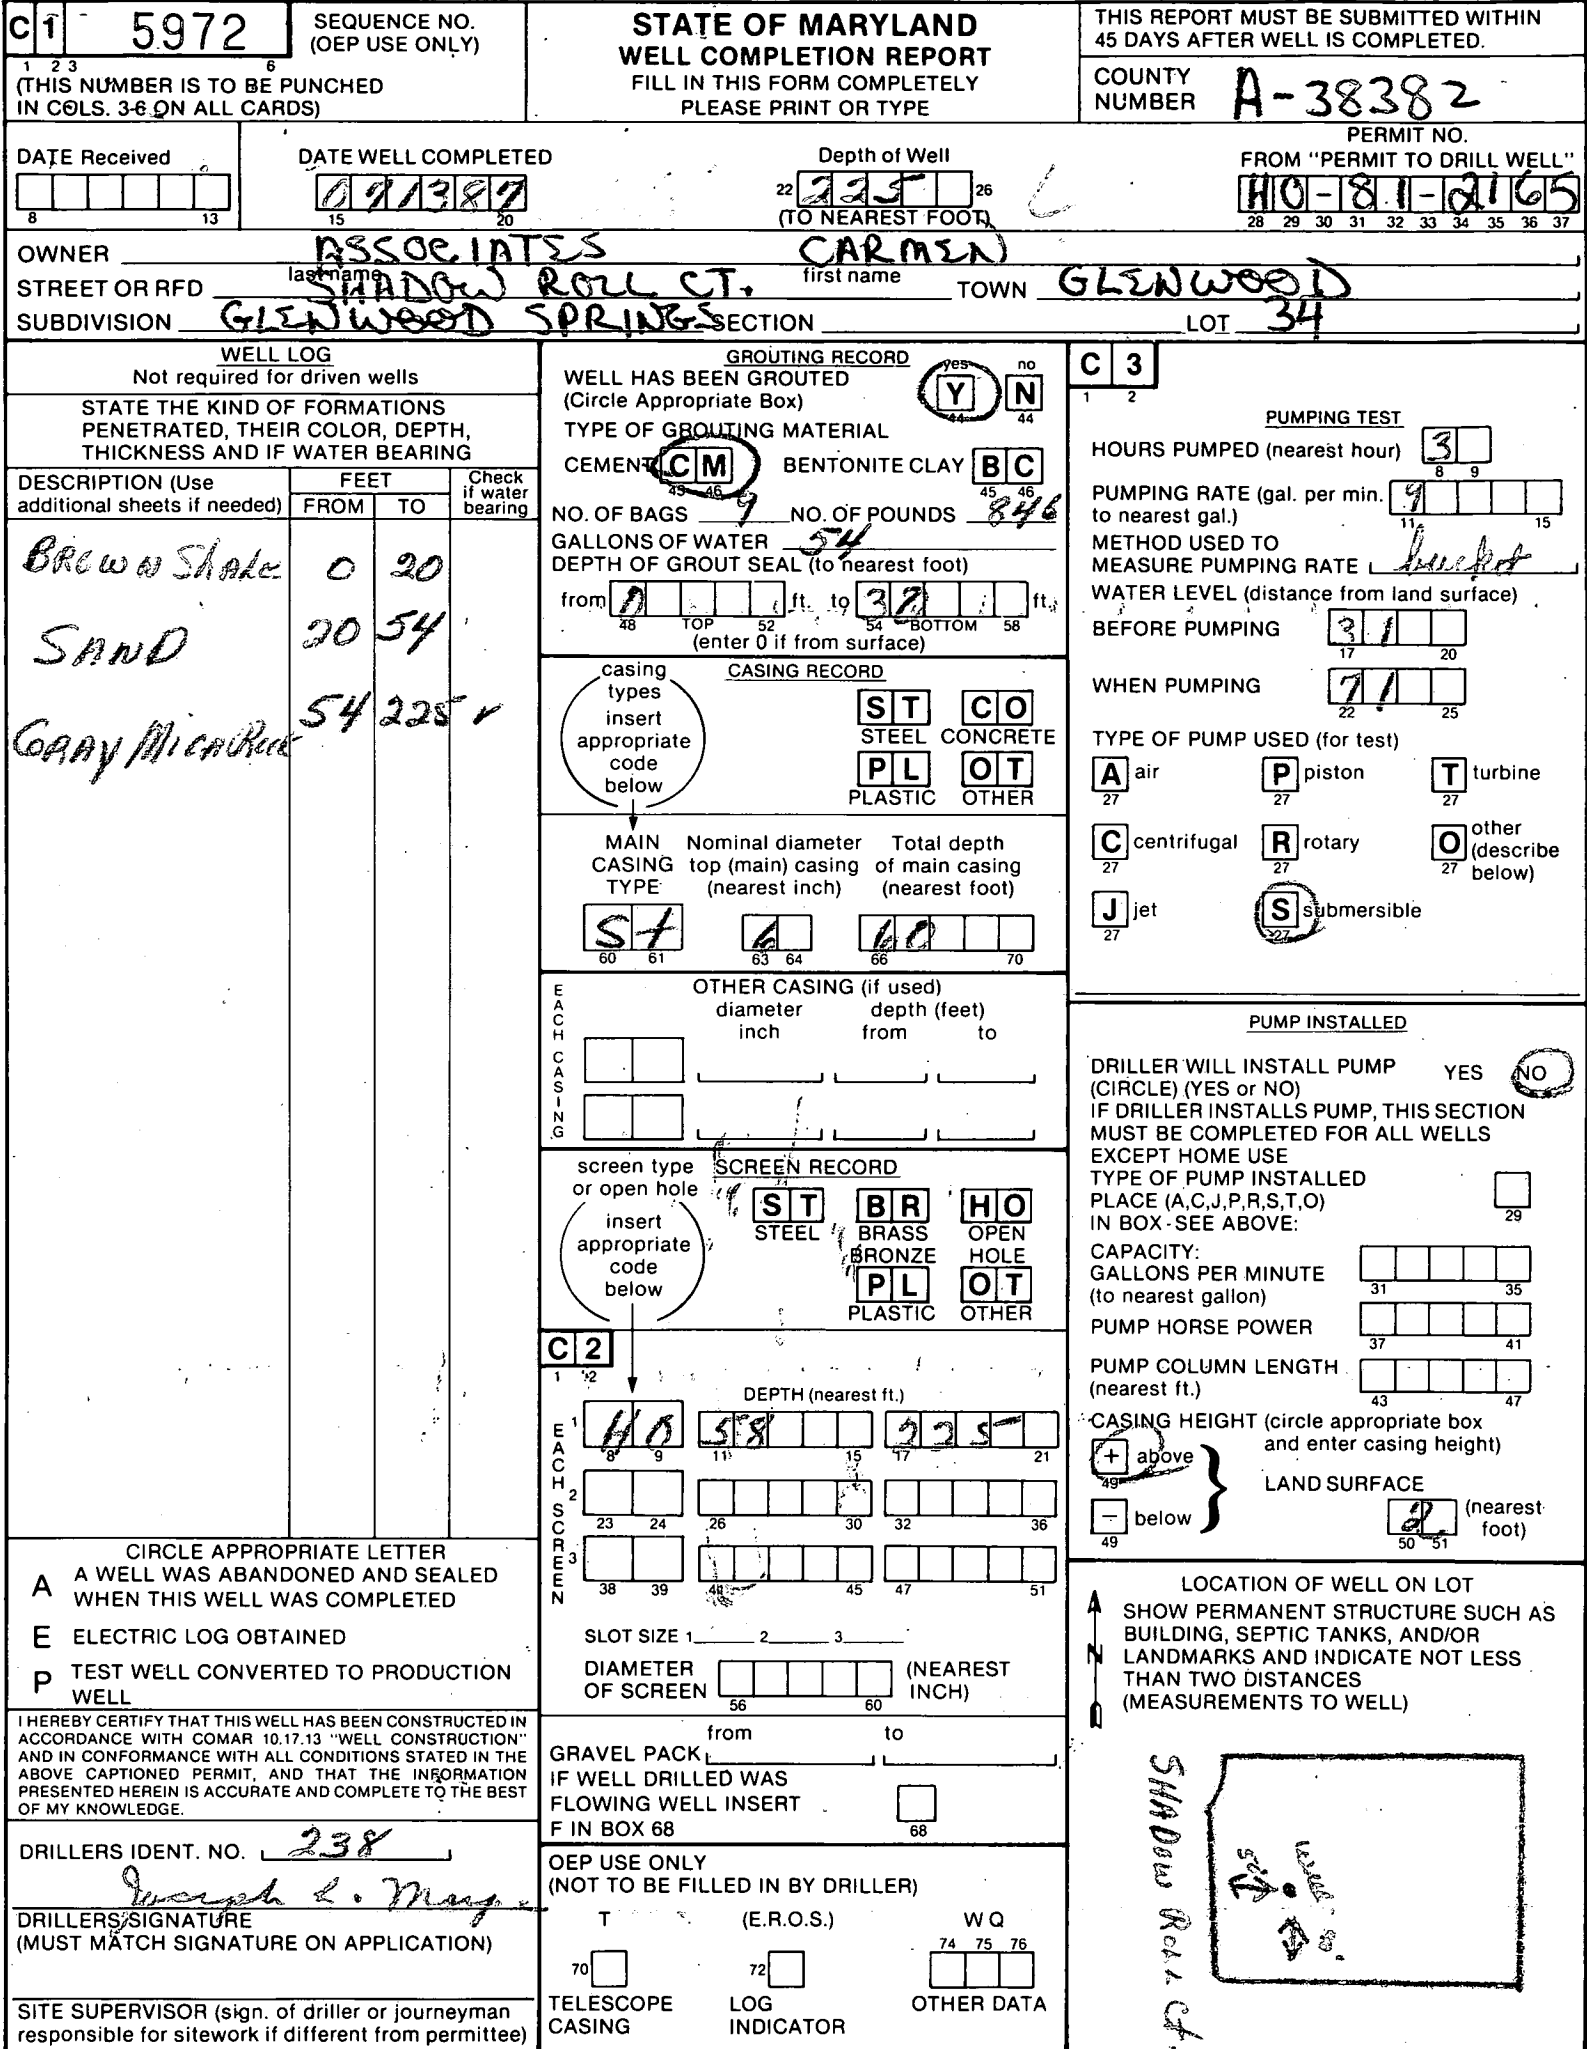 C 1 5972 SEQUENCE NO. (OEP USE ONLY)
1 2 3 6
(THIS NUMBER IS TO BE PUNCHED
IN COLS. 3-6 ON ALL CARDS)
STATE OF MARYLAND
WELL COMPLETION REPORT
FILL IN THIS FORM COMPLETELY
PLEASE PRINT OR TYPE
THIS REPORT MUST BE SUBMITTED WITHIN
45 DAYS AFTER WELL IS COMPLETED.
COUNTY NUMBER A-38382
DATE Received
8 13
DATE WELL COMPLETED
071387
15 20
Depth of Well
22 225 26
(TO NEAREST FOOT)
PERMIT NO.
FROM "PERMIT TO DRILL WELL"
HO-81-2165
28 29 30 31 32 33 34 35 36 37
OWNER ASSOCIATES CARMEN
last name first name
STREET OR RFD SHADOW ROLL CT. TOWN GLENWOOD
SUBDIVISION GLENWOOD SPRINGS SECTION LOT 34
WELL LOG
Not required for driven wells
STATE THE KIND OF FORMATIONS
PENETRATED, THEIR COLOR, DEPTH,
THICKNESS AND IF WATER BEARING
DESCRIPTION (Use additional sheets if needed) FEET FROM TO Check if water bearing
BROWN Shale 0 20
SAND 20 54
GRAY Mica Rock 54 225 ✓
CIRCLE APPROPRIATE LETTER
A A WELL WAS ABANDONED AND SEALED
WHEN THIS WELL WAS COMPLETED
E ELECTRIC LOG OBTAINED
P TEST WELL CONVERTED TO PRODUCTION
WELL
I HEREBY CERTIFY THAT THIS WELL HAS BEEN CONSTRUCTED IN
ACCORDANCE WITH COMAR 10.17.13 "WELL CONSTRUCTION"
AND IN CONFORMANCE WITH ALL CONDITIONS STATED IN THE
ABOVE CAPTIONED PERMIT, AND THAT THE INFORMATION
PRESENTED HEREIN IS ACCURATE AND COMPLETE TO THE BEST
OF MY KNOWLEDGE.
DRILLERS IDENT. NO. 238
Joseph L. Mayne
DRILLERS SIGNATURE
(MUST MATCH SIGNATURE ON APPLICATION)
SITE SUPERVISOR (sign. of driller or journeyman
responsible for sitework if different from permittee)
GROUTING RECORD
WELL HAS BEEN GROUTED yes Y no N
(Circle Appropriate Box) 44 44
TYPE OF GROUTING MATERIAL
CEMENT C M BENTONITE CLAY B C
45 46 45 46
NO. OF BAGS 9 NO. OF POUNDS 846
GALLONS OF WATER 54
DEPTH OF GROUT SEAL (to nearest foot)
from 0 ft. to 37 ft.
48 TOP 52 54 BOTTOM 58
(enter 0 if from surface)
casing types insert appropriate code below
CASING RECORD
S T C O
STEEL CONCRETE
P L O T
PLASTIC OTHER
MAIN CASING TYPE
Nominal diameter top (main) casing (nearest inch)
Total depth of main casing (nearest foot)
St 6 60
60 61 63 64 66 70
EACH CASING
OTHER CASING (if used)
diameter depth (feet)
inch from to
screen type or open hole
insert appropriate code below
SCREEN RECORD
S T B R H O
STEEL BRASS BRONZE OPEN HOLE
P L O T
PLASTIC OTHER
C 2
1 2
DEPTH (nearest ft.)
EACH SCREEN
1 HO 58 225
8 9 11 15 17 21
2
23 24 26 30 32 36
3
38 39 41 45 47 51
SLOT SIZE 1 2 3
DIAMETER OF SCREEN (NEAREST INCH)
56 60
from to
GRAVEL PACK
IF WELL DRILLED WAS
FLOWING WELL INSERT
F IN BOX 68 68
OEP USE ONLY
(NOT TO BE FILLED IN BY DRILLER)
T (E.R.O.S.) W Q
74 75 76
70 72
TELESCOPE CASING LOG INDICATOR OTHER DATA
C 3
1 2
PUMPING TEST
HOURS PUMPED (nearest hour) 3
8 9
PUMPING RATE (gal. per min. to nearest gal.) 9
11 15
METHOD USED TO
MEASURE PUMPING RATE bucket
WATER LEVEL (distance from land surface)
BEFORE PUMPING 31
17 20
WHEN PUMPING 71
22 25
TYPE OF PUMP USED (for test)
A air P piston T turbine
27 27 27
C centrifugal R rotary O other (describe below)
27 27 27
J jet S submersible
27 27
PUMP INSTALLED
DRILLER WILL INSTALL PUMP YES NO
(CIRCLE) (YES or NO)
IF DRILLER INSTALLS PUMP, THIS SECTION
MUST BE COMPLETED FOR ALL WELLS
EXCEPT HOME USE
TYPE OF PUMP INSTALLED
PLACE (A,C,J,P,R,S,T,O)
IN BOX - SEE ABOVE: 29
CAPACITY:
GALLONS PER MINUTE
(to nearest gallon) 31 35
PUMP HORSE POWER
37 41
PUMP COLUMN LENGTH
(nearest ft.) 43 47
CASING HEIGHT (circle appropriate box
and enter casing height)
+ above
49
LAND SURFACE
- below 2 (nearest foot)
49 50 51
LOCATION OF WELL ON LOT
SHOW PERMANENT STRUCTURE SUCH AS
BUILDING, SEPTIC TANKS, AND/OR
LANDMARKS AND INDICATE NOT LESS
THAN TWO DISTANCES
(MEASUREMENTS TO WELL)
N
SHADOW ROLL Ct.
well